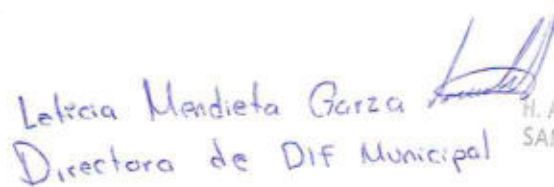 Leticia Mendieta Garza
H. A
Directora de DIF Municipal
SAN